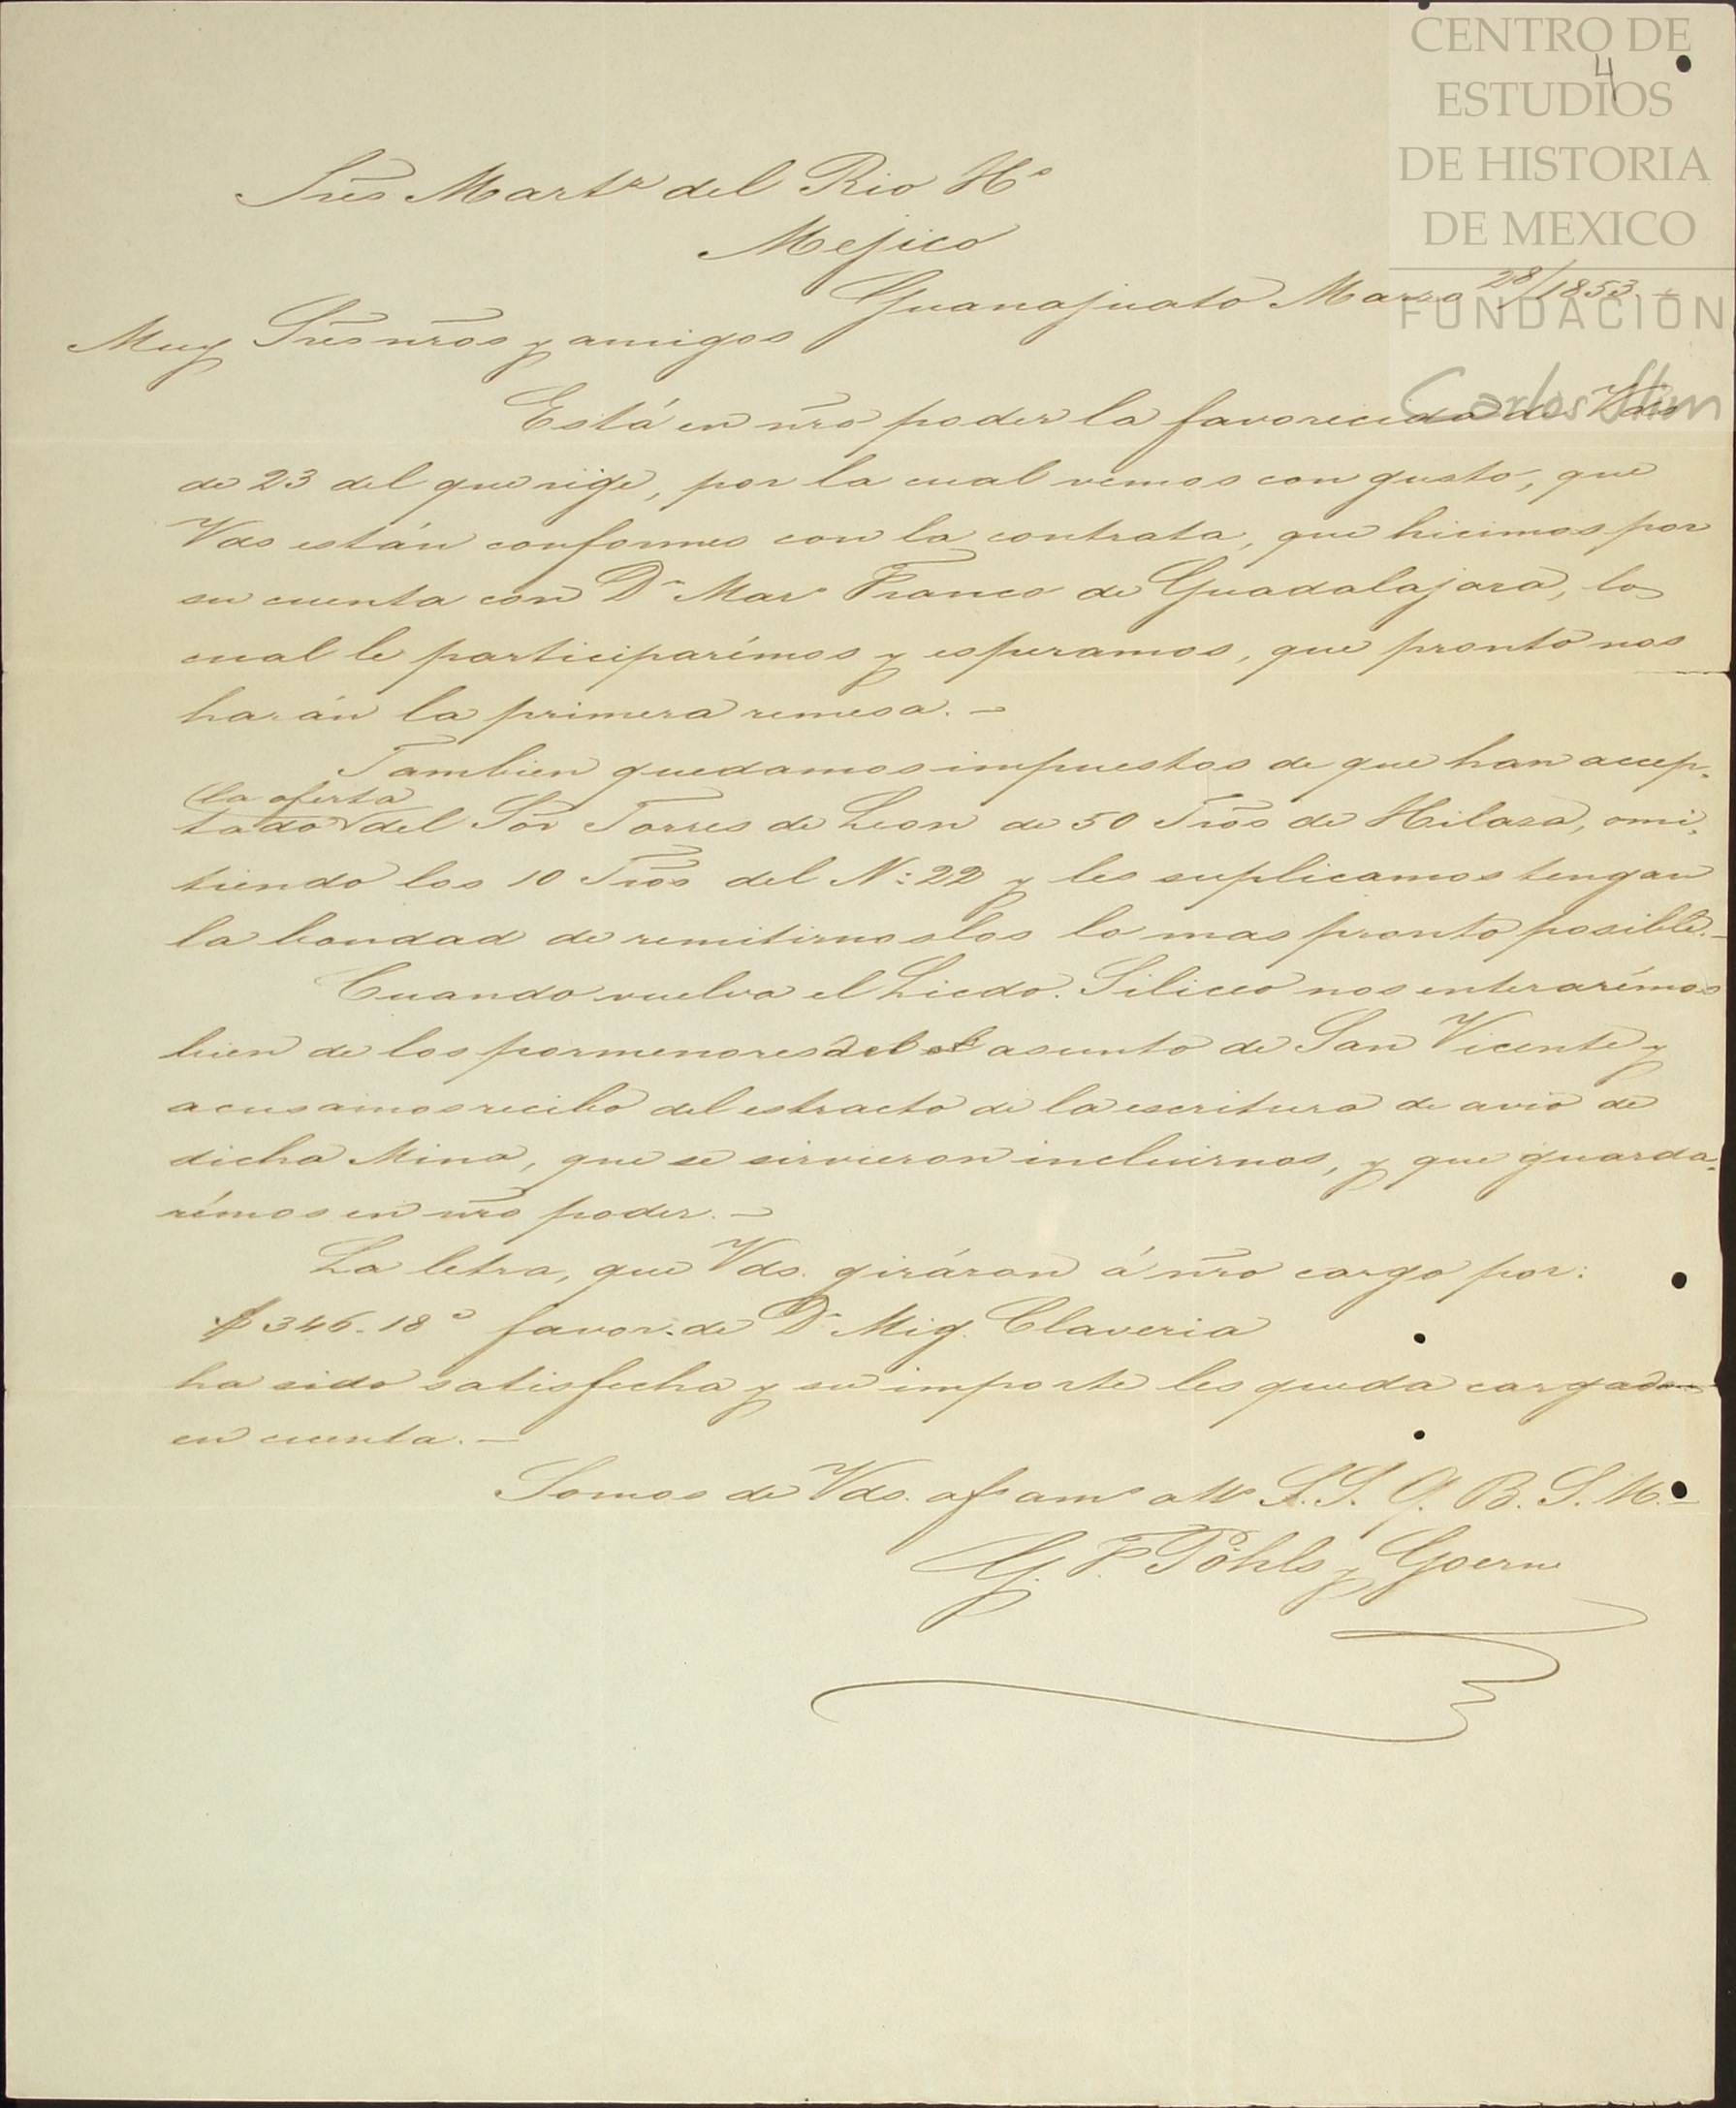 CENTRO DE
ESTUDIOS
DE HISTORIA
DE MEXICO
FUNDACIÓN
Carlos Slim
4
Sres Martz del Rio Hs
Mejico
Guanajuato Marzo 28/1853.
Muy Sres nros y amigos
Está en nro poder la favorecida de Vds
de 23 del que rige, por la cual vemos con gusto, que
Vds están conformes con la contrata, que hicimos por
su cuenta con Dn Mar. Franco de Guadalajara, lo
cual le participarémos y esperamos, que pronto nos
harán la primera remesa. –
Tambien quedamos impuestos de que han accep-
la oferta
tado del Sor Torres de Leon de 50 Tros de Hilaza, omi-
tiendo los 10 Tros del No: 22 y les suplicamos tengan
la bondad de remitirnoslos lo mas pronto posible. –
Cuando vuelva el Licdo. Siliceo nos enterarémos
bien de los pormenores del asunto de San Vicente y
acusamos recibo del estracto de la escritura de avio de
dicha Mina, que se sirvieron incluirnos, y que guarda-
rémos en nro poder. –
La letra, que Vds. giráron á nro cargo por:
$ 346. 18 c favor. de Dn Mig. Claveria
ha sido satisfecha y su importe les queda cargado
en cuenta. –
Somos de Vds. afs ams atts S. S. Q. B. S. M. –
G. F. Pöhls y Goerne